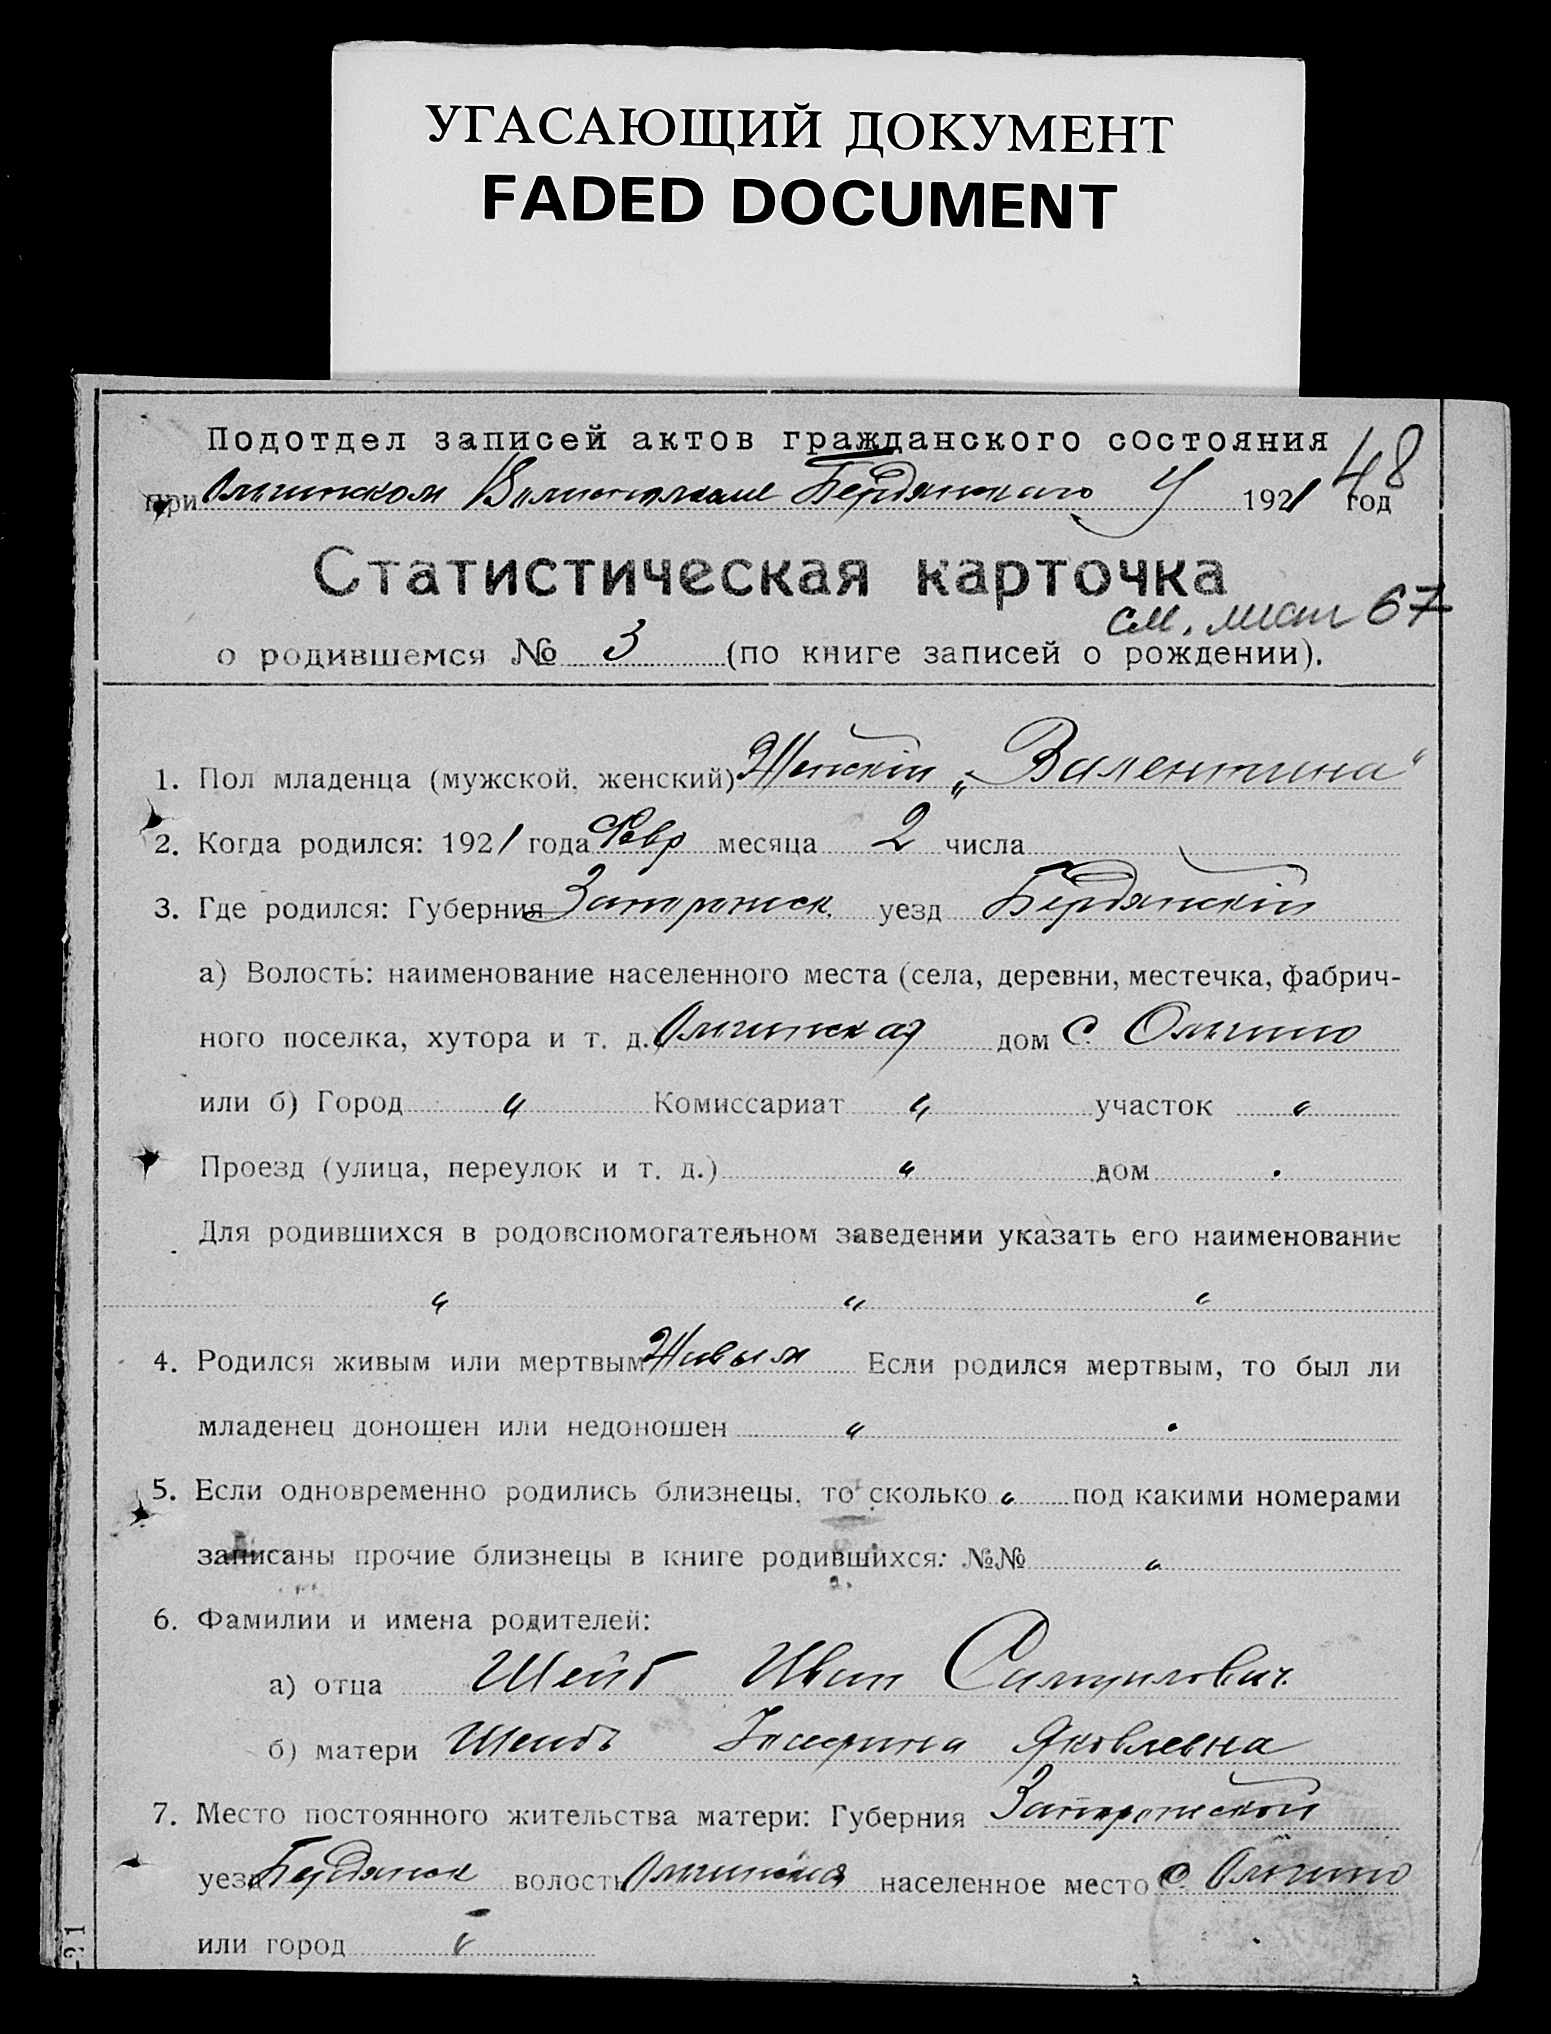 УГАСАЮЩИЙ ДОКУМЕНТ
FADED DOCUMENT
Подотдел записей актов гражданского состояния
48
при Ольгинском Волисполкоме Бердянского У 1921 год
Статистическая карточка
см. лист 67
о родившемся № 3 (по книге записей о рождении).
1. Пол младенца (мужской, женский) Женскій „Валентина“
2. Когда родился: 1921 года Февр месяца 2 числа
3. Где родился: Губерния Запорожск. уезд Бердянскій
а) Волость: наименование населенного места (села, деревни, местечка, фабрич-
ного поселка, хутора и т. д.) Ольгинская дом с. Ольгино
или б) Город " Комиссариат " участок "
Проезд (улица, переулок и т. д.) " дом
Для родившихся в родовспомогательном заведении указать его наименование
" " "
4. Родился живым или мертвым Живым Если родился мертвым, то был ли
младенец доношен или недоношен "
5. Если одновременно родились близнецы, то сколько " под какими номерами
записаны прочие близнецы в книге родившихся: №№ "
6. Фамилии и имена родителей:
а) отца Шейб Иван Самуилович.
б) матери Шейбъ Яковлевна
7. Место постоянного жительства матери: Губерния Запорожской
уезд Бердянск волость Ольгинская населенное место с. Ольгино
или город "